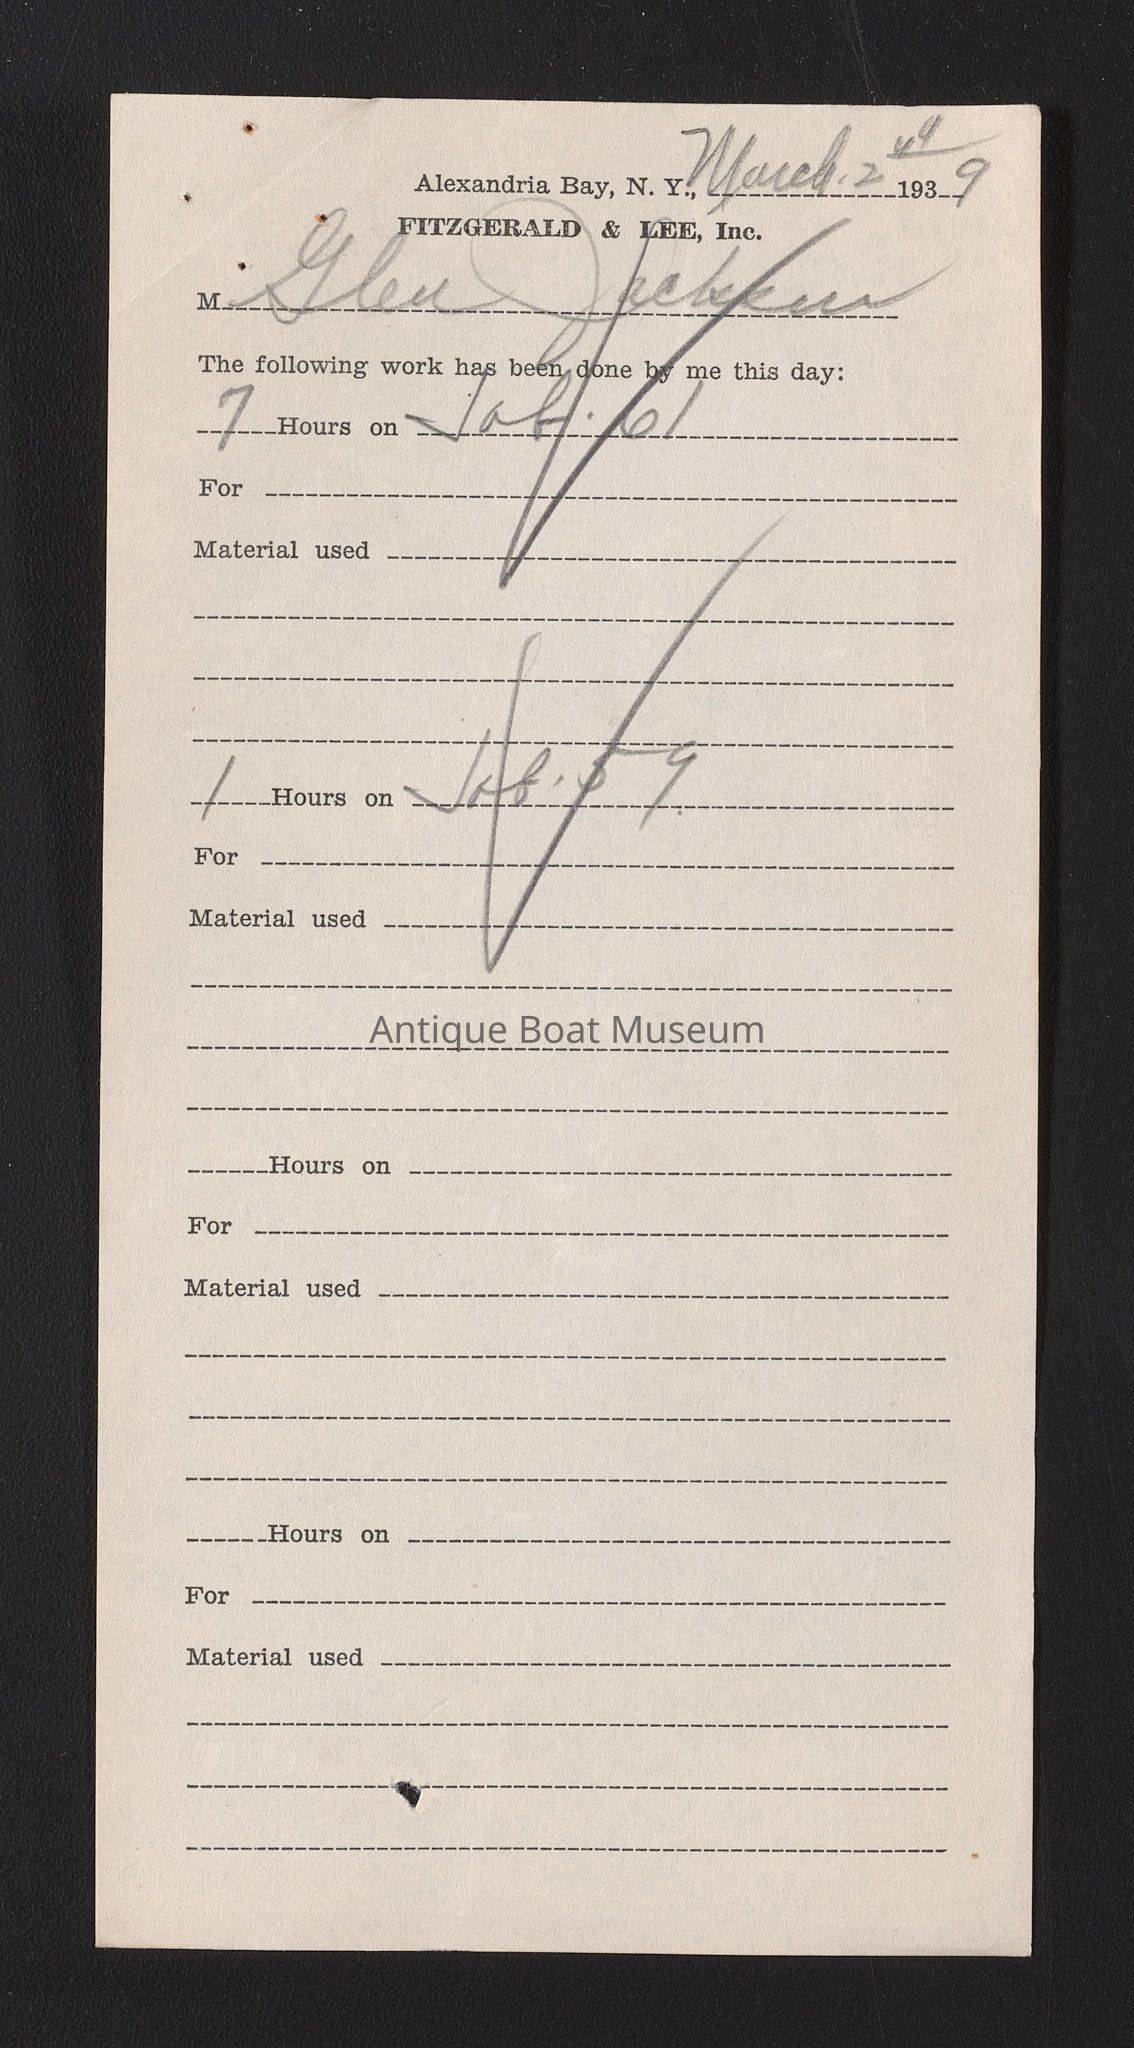 Alexandria Bay, N. Y., March. 2nd 1939
FITZGERALD & LEE, Inc.
M Glen Jackson
The following work has been done by me this day:
7 Hours on Job. 61
For
Material used
1 Hours on Job. 59.
For
Material used
Antique Boat Museum
Hours on
For
Material used
Hours on
For
Material used